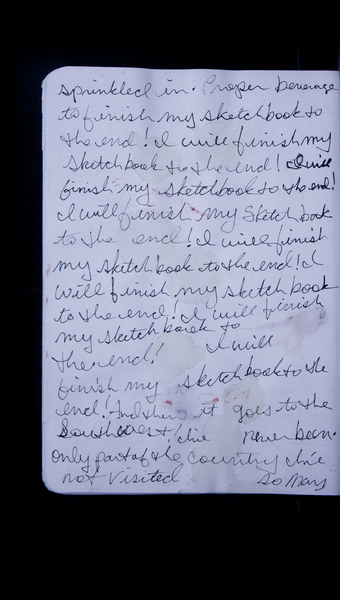 sprinkled in. Proper beverage
to finish my sketchbook to
the end! I will finish my
sketchbook to the end! I will
finish my sketchbook to the end!
I will finish my sketchbook
to the end! I will finish
my sketchbook to the end! I
will finish my sketchbook
to the end! I will finish
my sketchbook to
the end! I will
finish my sketchbook to the
end! And then it goes to the
Southwest! I've never been.
only part of the country I've
not visited so many